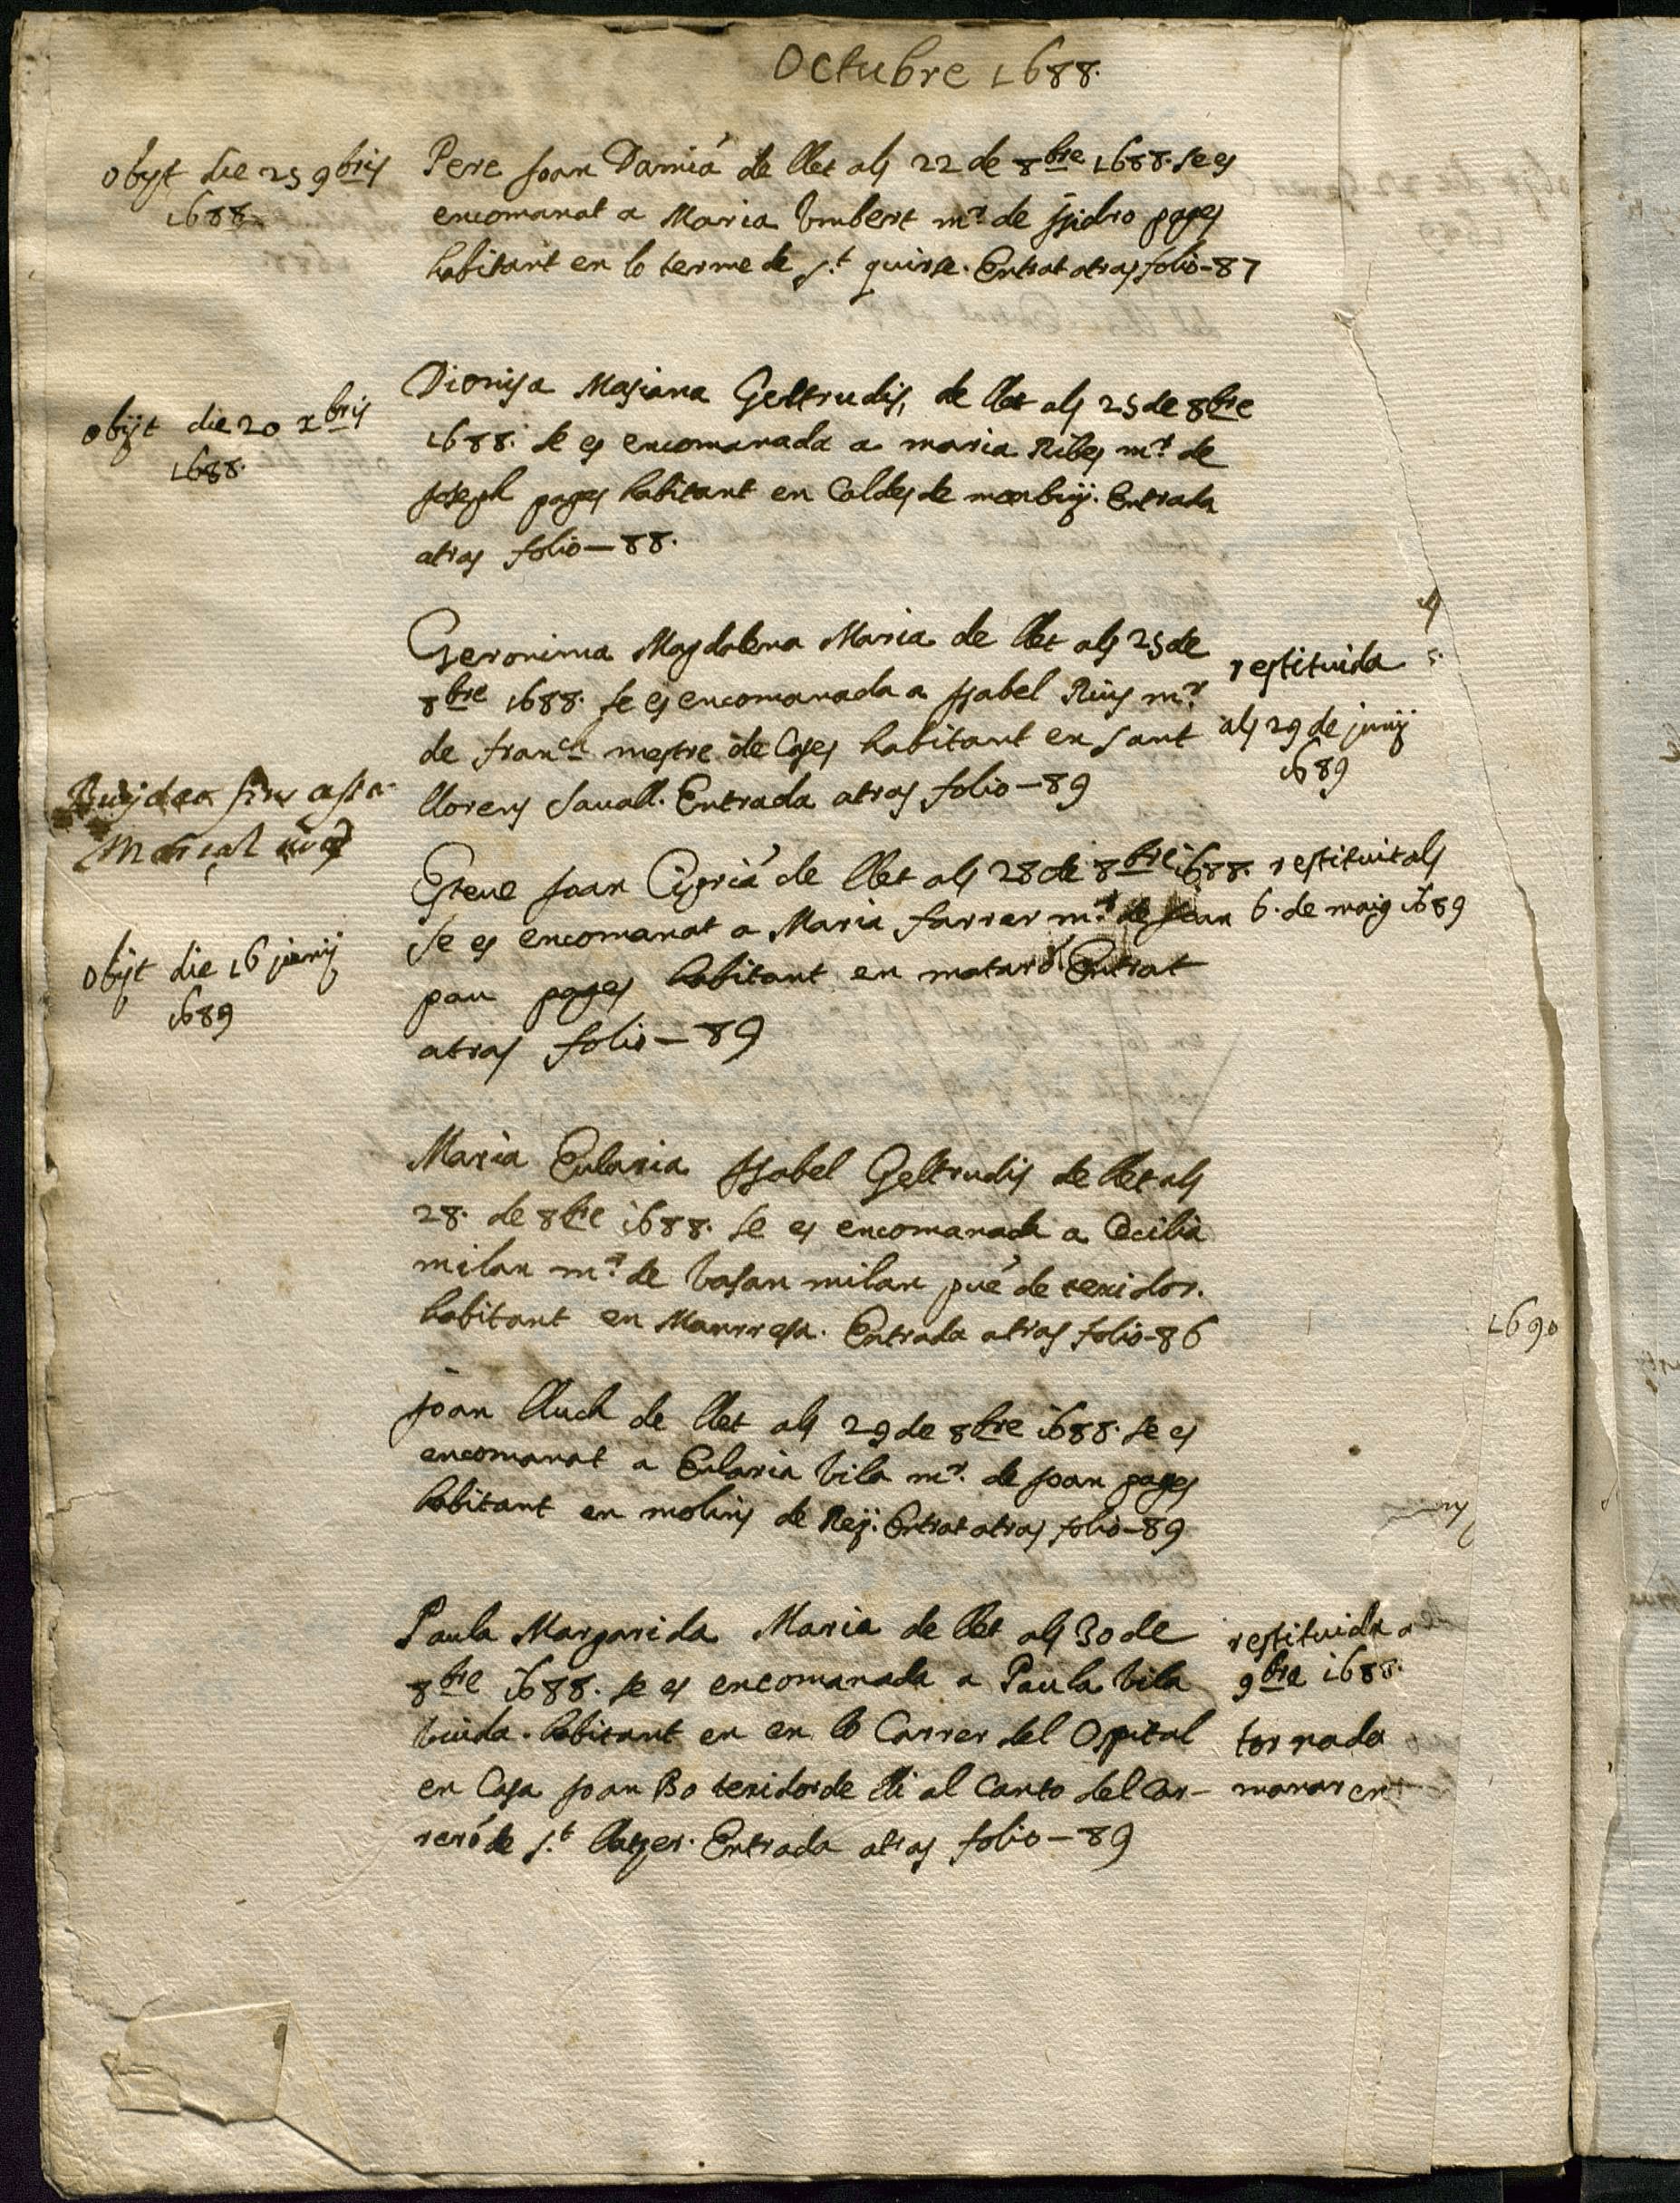 Octubre 1688.
obyt die 25 9bris
1688
Pere Joan Damiá de llet als 22 de 8bre 1688. se es
encomanat a Maria Vmbert mr. de Isidro pages
habitant en lo terme de s.t quirse. Entrat atras folio-87
obijt die 20 xbris
1688.
Dionisa Mariana Geltrudis, de llet als 25 de 8bre
1688. se es encomanada a maria Ribes mr. de
Joseph pages habitant en Caldes de monbuÿ. Entrada
atras folio-88.
Geronima Magdalena Maria de llet als 25 de
8bre 1688. se es encomanada a Isabel Rius mr.
de franch mestre de Cases habitant en sant
llorens sauall. Entrada atras folio-89
restituida
als 29 de junÿ
1689
Marçal
Esteue Joan Ciprià de llet als 28 de 8bre 1688.
se es encomanat a Maria farrer mr. de Joan
pau pages habitant en mataró Entrat
atras folio-89
restituit als
6. de maig 1689
obijt die 16 junij
1689
Maria Eularia Isabel Geltrudis de llet als
28. de 8bre 1688. se es encomanada a Cecilia
milan mr. de milan de texidor.
habitant en Manrresa. Entrada atras folio-86
1690
Joan lluch de llet als 29 de 8bre 1688. se es
encomanat a Eularia Vila mr. de Joan pages
habitant en molins de Reÿ. Entrat atras folio-89
Paula Margarida Maria de llet als 30 de
8bre 1688. se es encomanada a Paula Vila
Viuda. habitant en en lo Carrer del Ospital
en Casa Joan Bo texidor de lli al Canto del Car-
reró de s.t llatzer. Entrada atras folio-89
restituida a
9bre 1688.
tornada